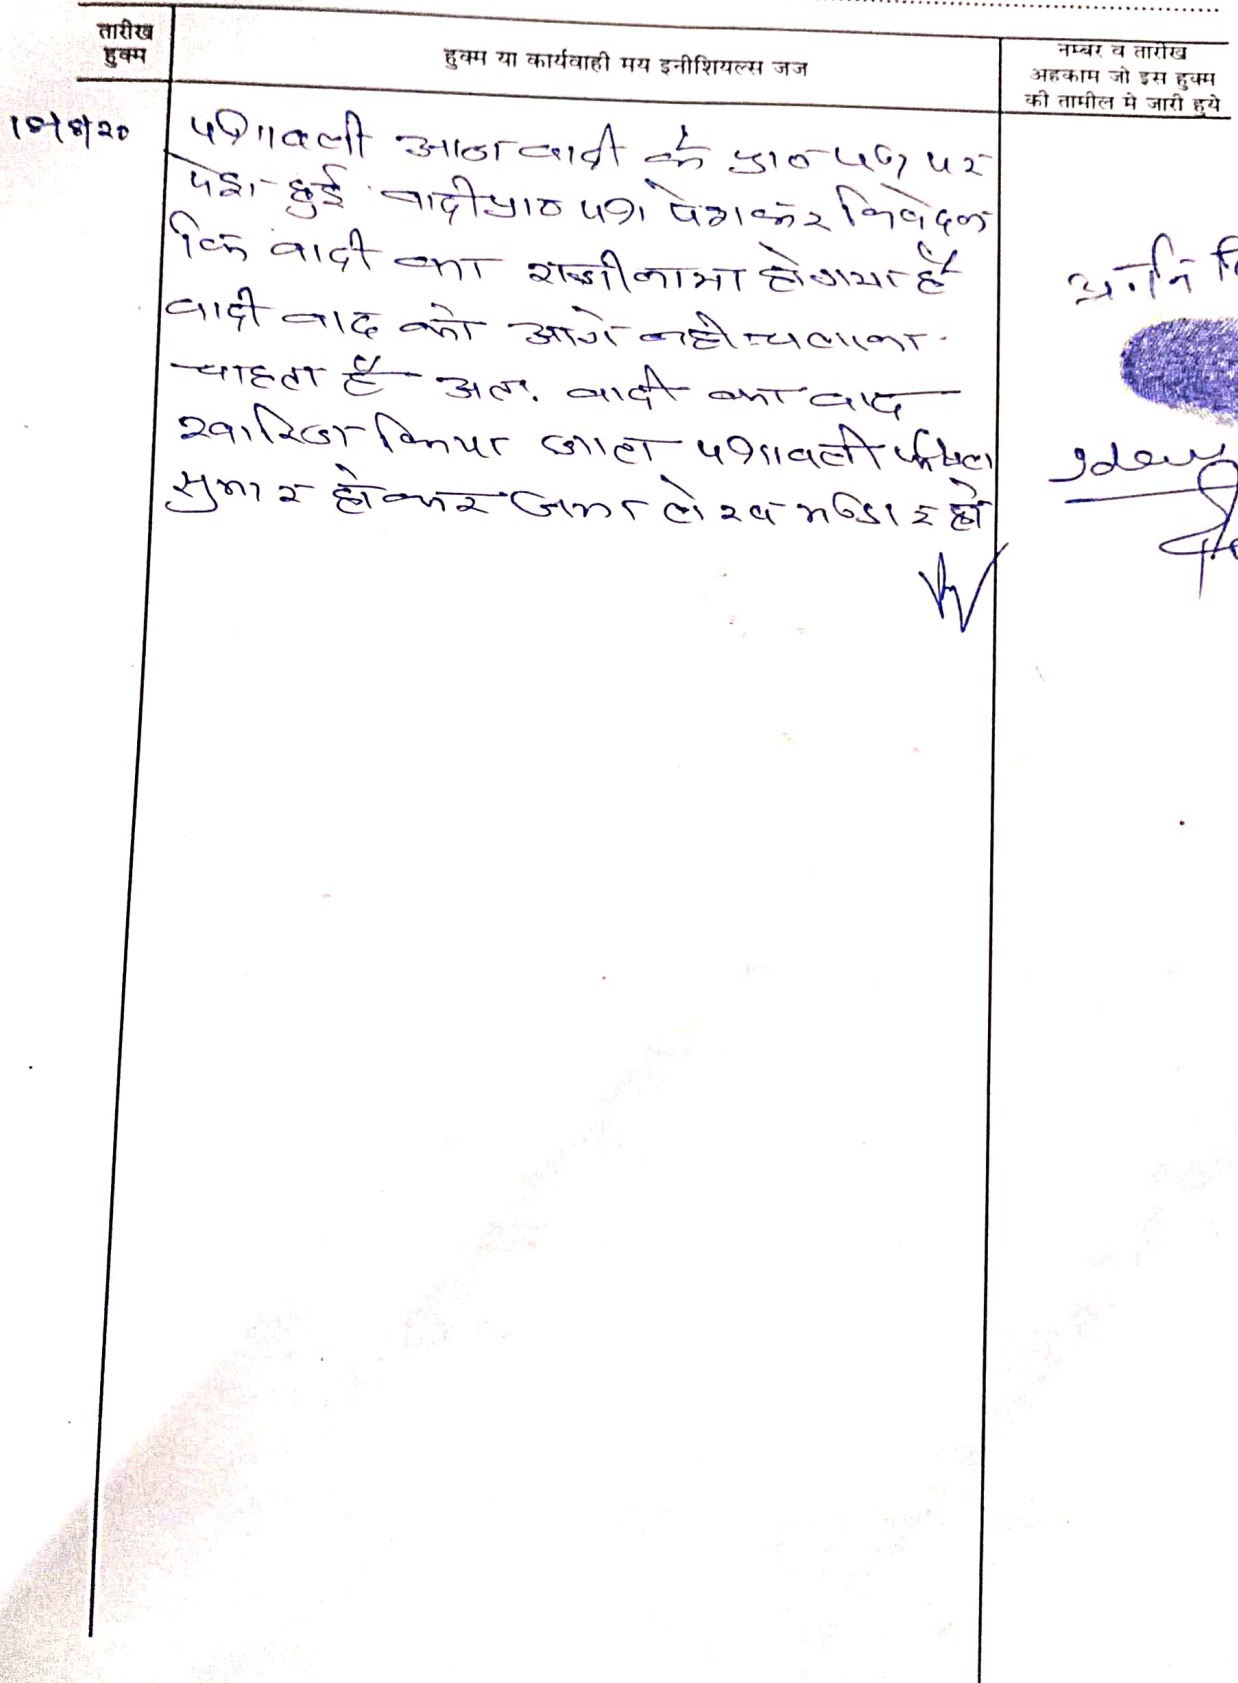 तारीख
हुक्म
हुक्म या कार्यवाही मय इनीशियल्स जज
नम्बर व तारीख
अहकाम जो इस हुक्म
की तामील मे जारी हुये
पत्रावली आज वादी के प्रा० पत्र पर
पेश हुई वादी प्रा० पत्र पेशकर निवेदन
कि वादी का राजीनामा होगया है
वादी वाद को आगे नही चलाना
चाहता है अतः वादी का वाद
खारिज किया जाता पत्रावली फैसल
सुमार होकर जमा लेख भण्डार हो
अ.नि